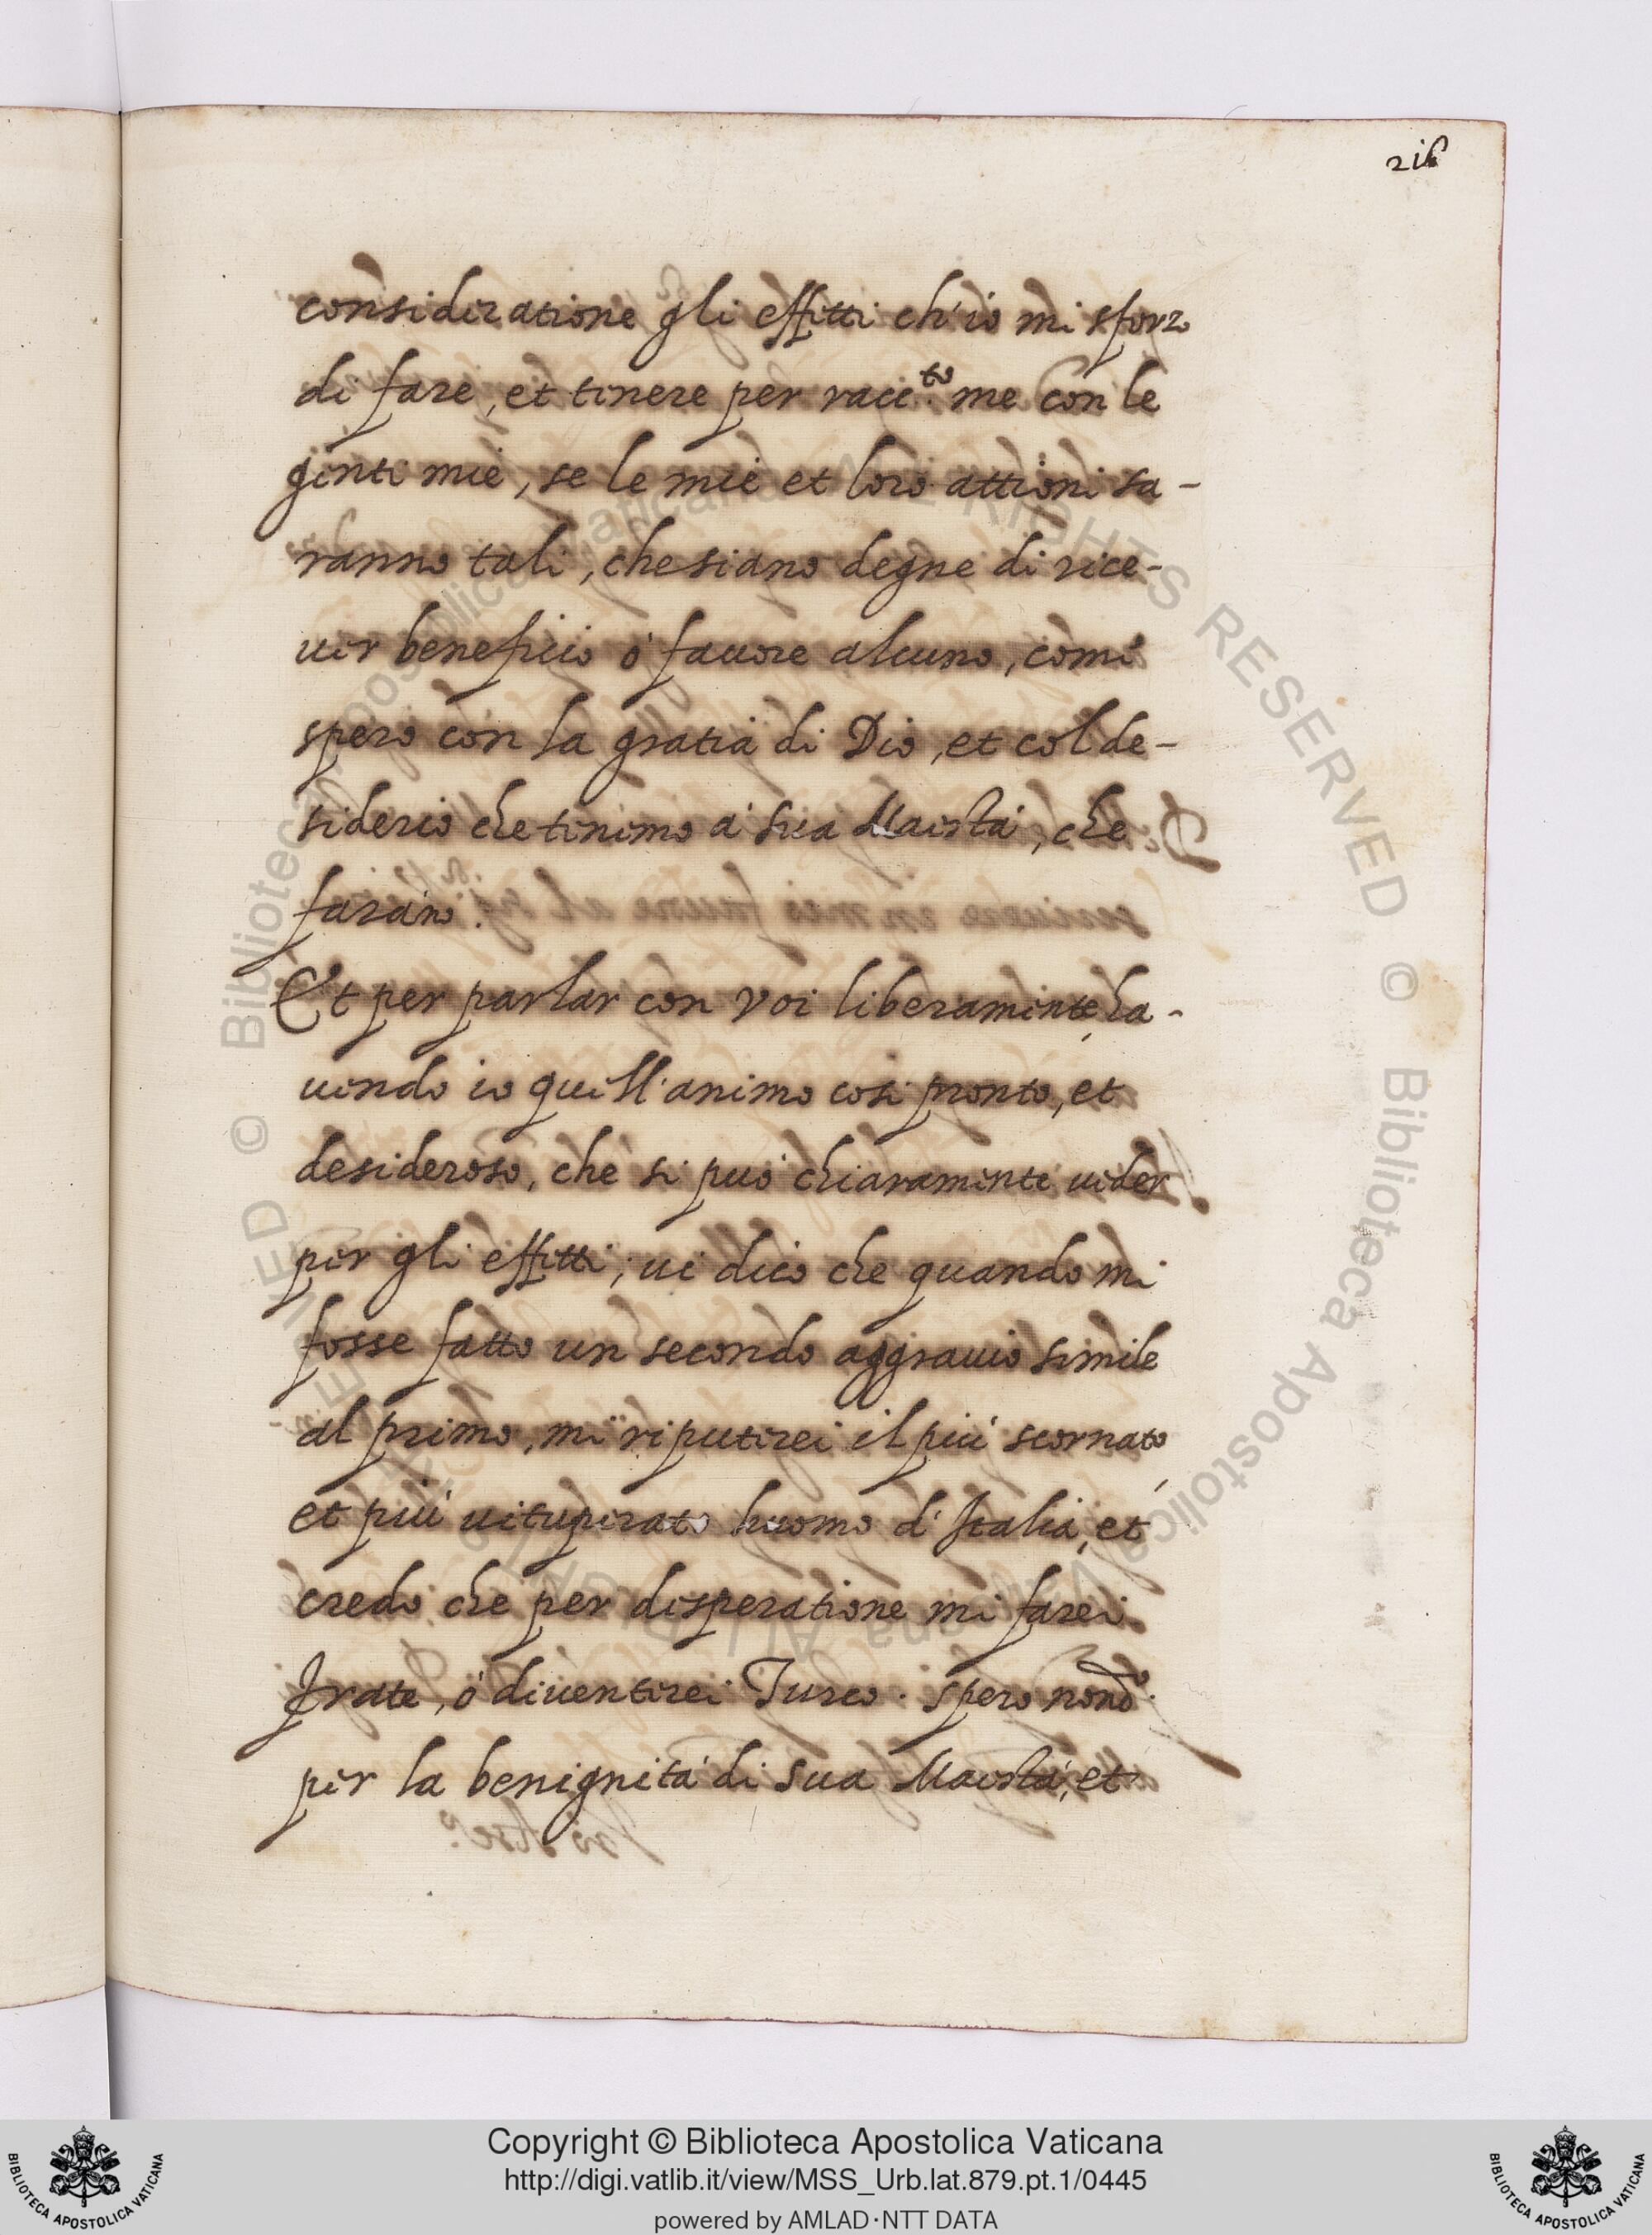 consideratione gli effetti ch'io mi sforzo
di fare, et tenere per racc.to me con le
genti mie, se le mie et loro attioni sa-
ranno tali, che siano degne di rice-
uer beneficio ó fauore alcuno, come
spero con la gratia di Dio, et col de-
siderio che tenemo á sua Maestá, che
farano.
Et per parlar con voi liberamente, ha-
uendo io quell'animo cosi pronto, et
desideroso, che si puó chiaramente ueder
per gli effetti, ui dico che quando mi
fosse fatto un secondo aggrauio simile
al primo, mi riputerei il piú scornato,
et piú uituperato huomo d'Italia, et
credo che per disperatione mi farei
frate, ó diuenterei Turco. spero
per la benignitá di sua Maestá, et
Copyright © Biblioteca Apostolica Vaticana
http://digi.vatlib.it/view/MSS_Urb.lat.879.pt.1/0445
powered by AMLAD·NTT DATA
BIBLIOTECA APOSTOLICA VATICANA
BIBLIOTECA APOSTOLICA VATICANA